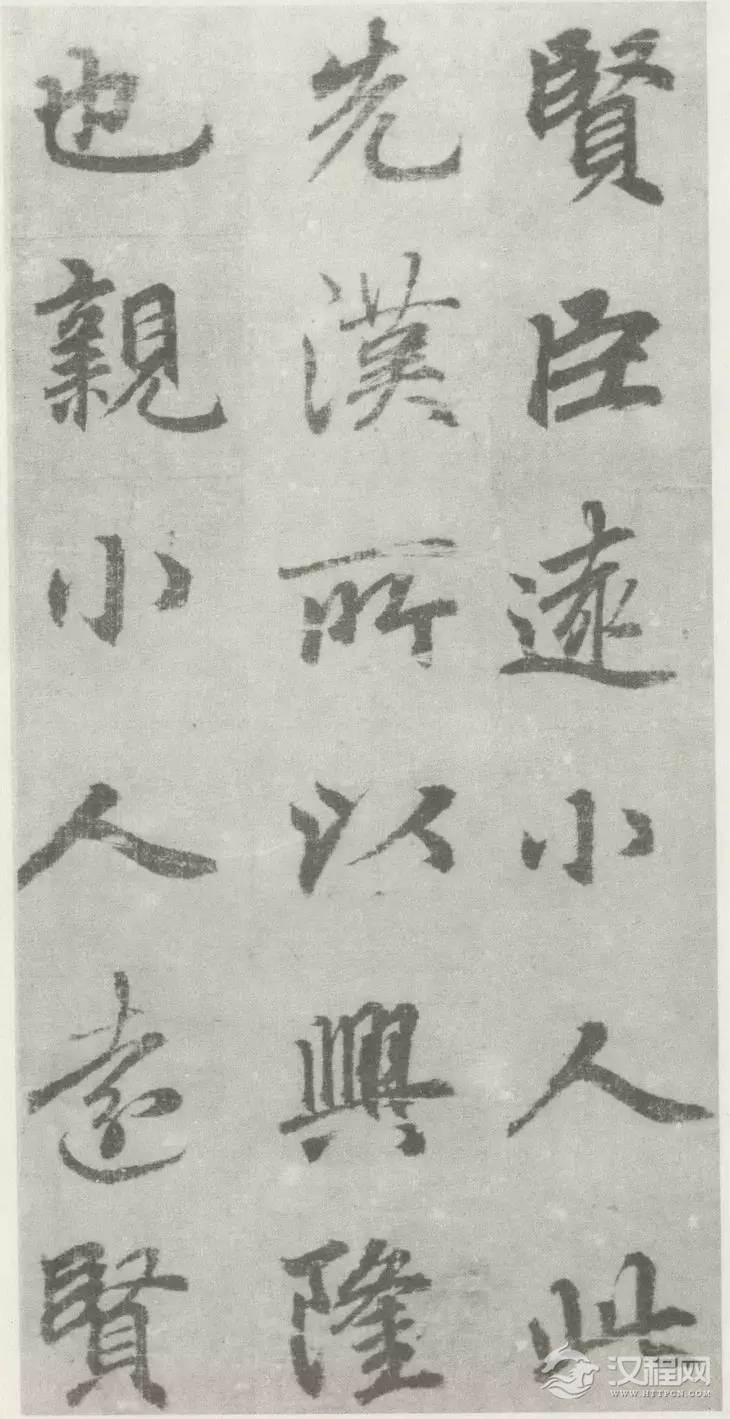 賢臣遠小人此
先漢所以興隆
也親小人遠賢
汉程网
WWW.HTTPCN.COM